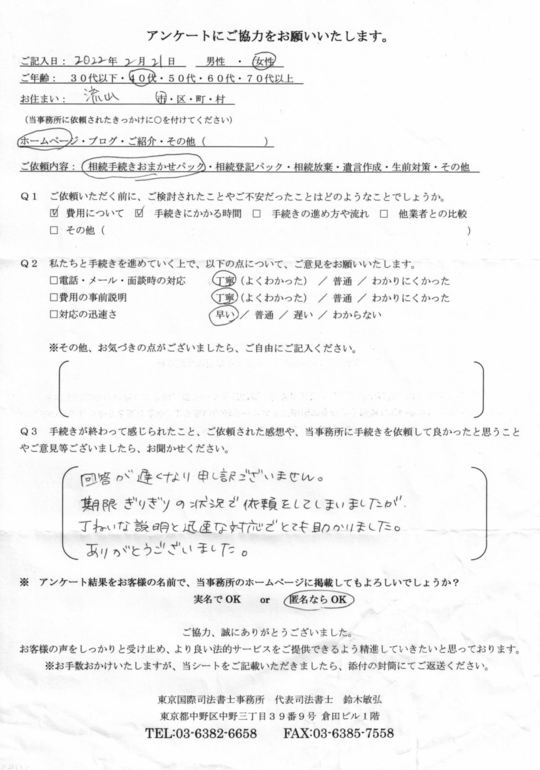 アンケートにご協力をお願いいたします。
ご記入日：2022年 2月 21日　男性 ・ 女性
ご年齢： 30代以下・40代・50代・60代・70代以上
お住まい： 流山　市・区・町・村
（当事務所に依頼されたきっかけに○を付けてください）
ホームページ・ブログ・ご紹介・その他（　　　　）
ご依頼内容：相続手続きおまかせパック・相続登記パック・相続放棄・遺言作成・生前対策・その他
Q1 ご依頼いただく前に、ご検討されたことやご不安だったことはどのようなことでしょうか。
☑ 費用について ☑ 手続きにかかる時間 □ 手続きの進め方や流れ □ 他業者との比較
□ その他（　　　　）
Q2 私たちと手続きを進めていく上で、以下の点について、ご意見をお願いいたします。
□電話・メール・面談時の対応　丁寧（よくわかった） ／ 普通 ／ わかりにくかった
□費用の事前説明　丁寧（よくわかった） ／ 普通 ／ わかりにくかった
□対応の迅速さ　早い ／ 普通 ／ 遅い ／ わからない
※その他、お気づきの点がございましたら、ご自由にご記入ください。
Q3 手続きが終わって感じられたこと、ご依頼された感想や、当事務所に手続きを依頼して良かったと思うこと
やご意見等ございましたら、お聞かせください。
回答が遅くなり申し訳ございません。
期限ぎりぎりの状況で依頼をしてしまいましたが、
丁ねいな説明と迅速な対応でとても助かりました。
ありがとうございました。
※ アンケート結果をお客様の名前で、当事務所のホームページに掲載してもよろしいでしょうか？
実名でOK　or　匿名ならOK
ご協力、誠にありがとうございました。
お客様の声をしっかりと受け止め、より良い法的サービスをご提供できるよう精進していきたいと思っております。
※お手数おかけいたしますが、当シートをご記載いただきましたら、添付の封筒にてご返送ください。
東京国際司法書士事務所　代表司法書士　鈴木敏弘
東京都中野区中野三丁目39番9号 倉田ビル1階
TEL:03-6382-6658　FAX:03-6385-7558